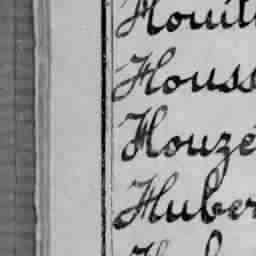 Houil
Houss
Houze
Huber